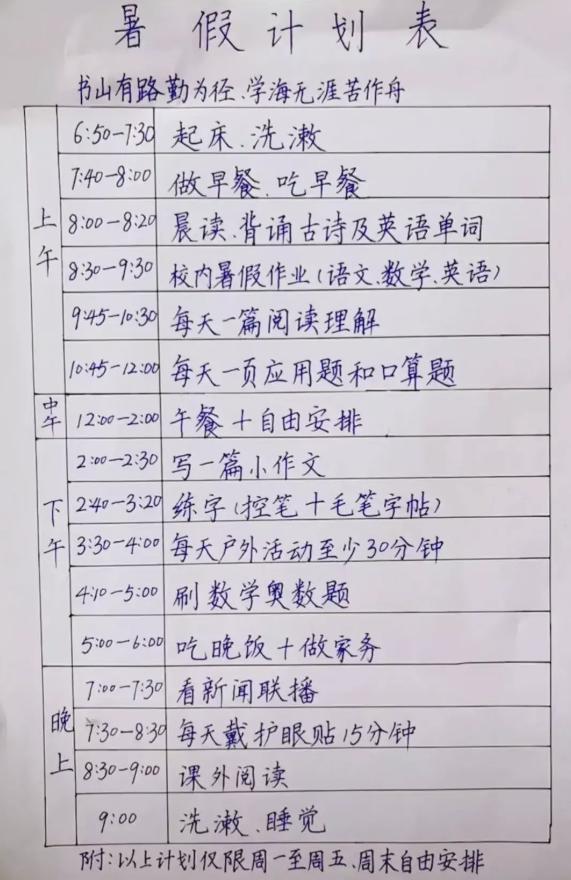 暑假计划表
书山有路勤为径、学海无涯苦作舟
上午
6:50-7:30 起床、洗漱
7:40-8:00 做早餐、吃早餐
8:00-8:20 晨读、背诵古诗及英语单词
8:30-9:30 校内暑假作业(语文、数学、英语)
9:45-10:30 每天一篇阅读理解
10:45-12:00 每天一页应用题和口算题
中午
12:00-2:00 午餐+自由安排
下午
2:00-2:30 写一篇小作文
2:40-3:20 练字(控笔+毛笔字帖)
3:30-4:00 每天户外活动至少30分钟
4:10-5:00 刷数学奥数题
5:00-6:00 吃晚饭+做家务
晚上
7:00-7:30 看新闻联播
7:30-8:30 每天戴护眼贴15分钟
8:30-9:00 课外阅读
9:00 洗漱、睡觉
附:以上计划仅限周一至周五、周末自由安排